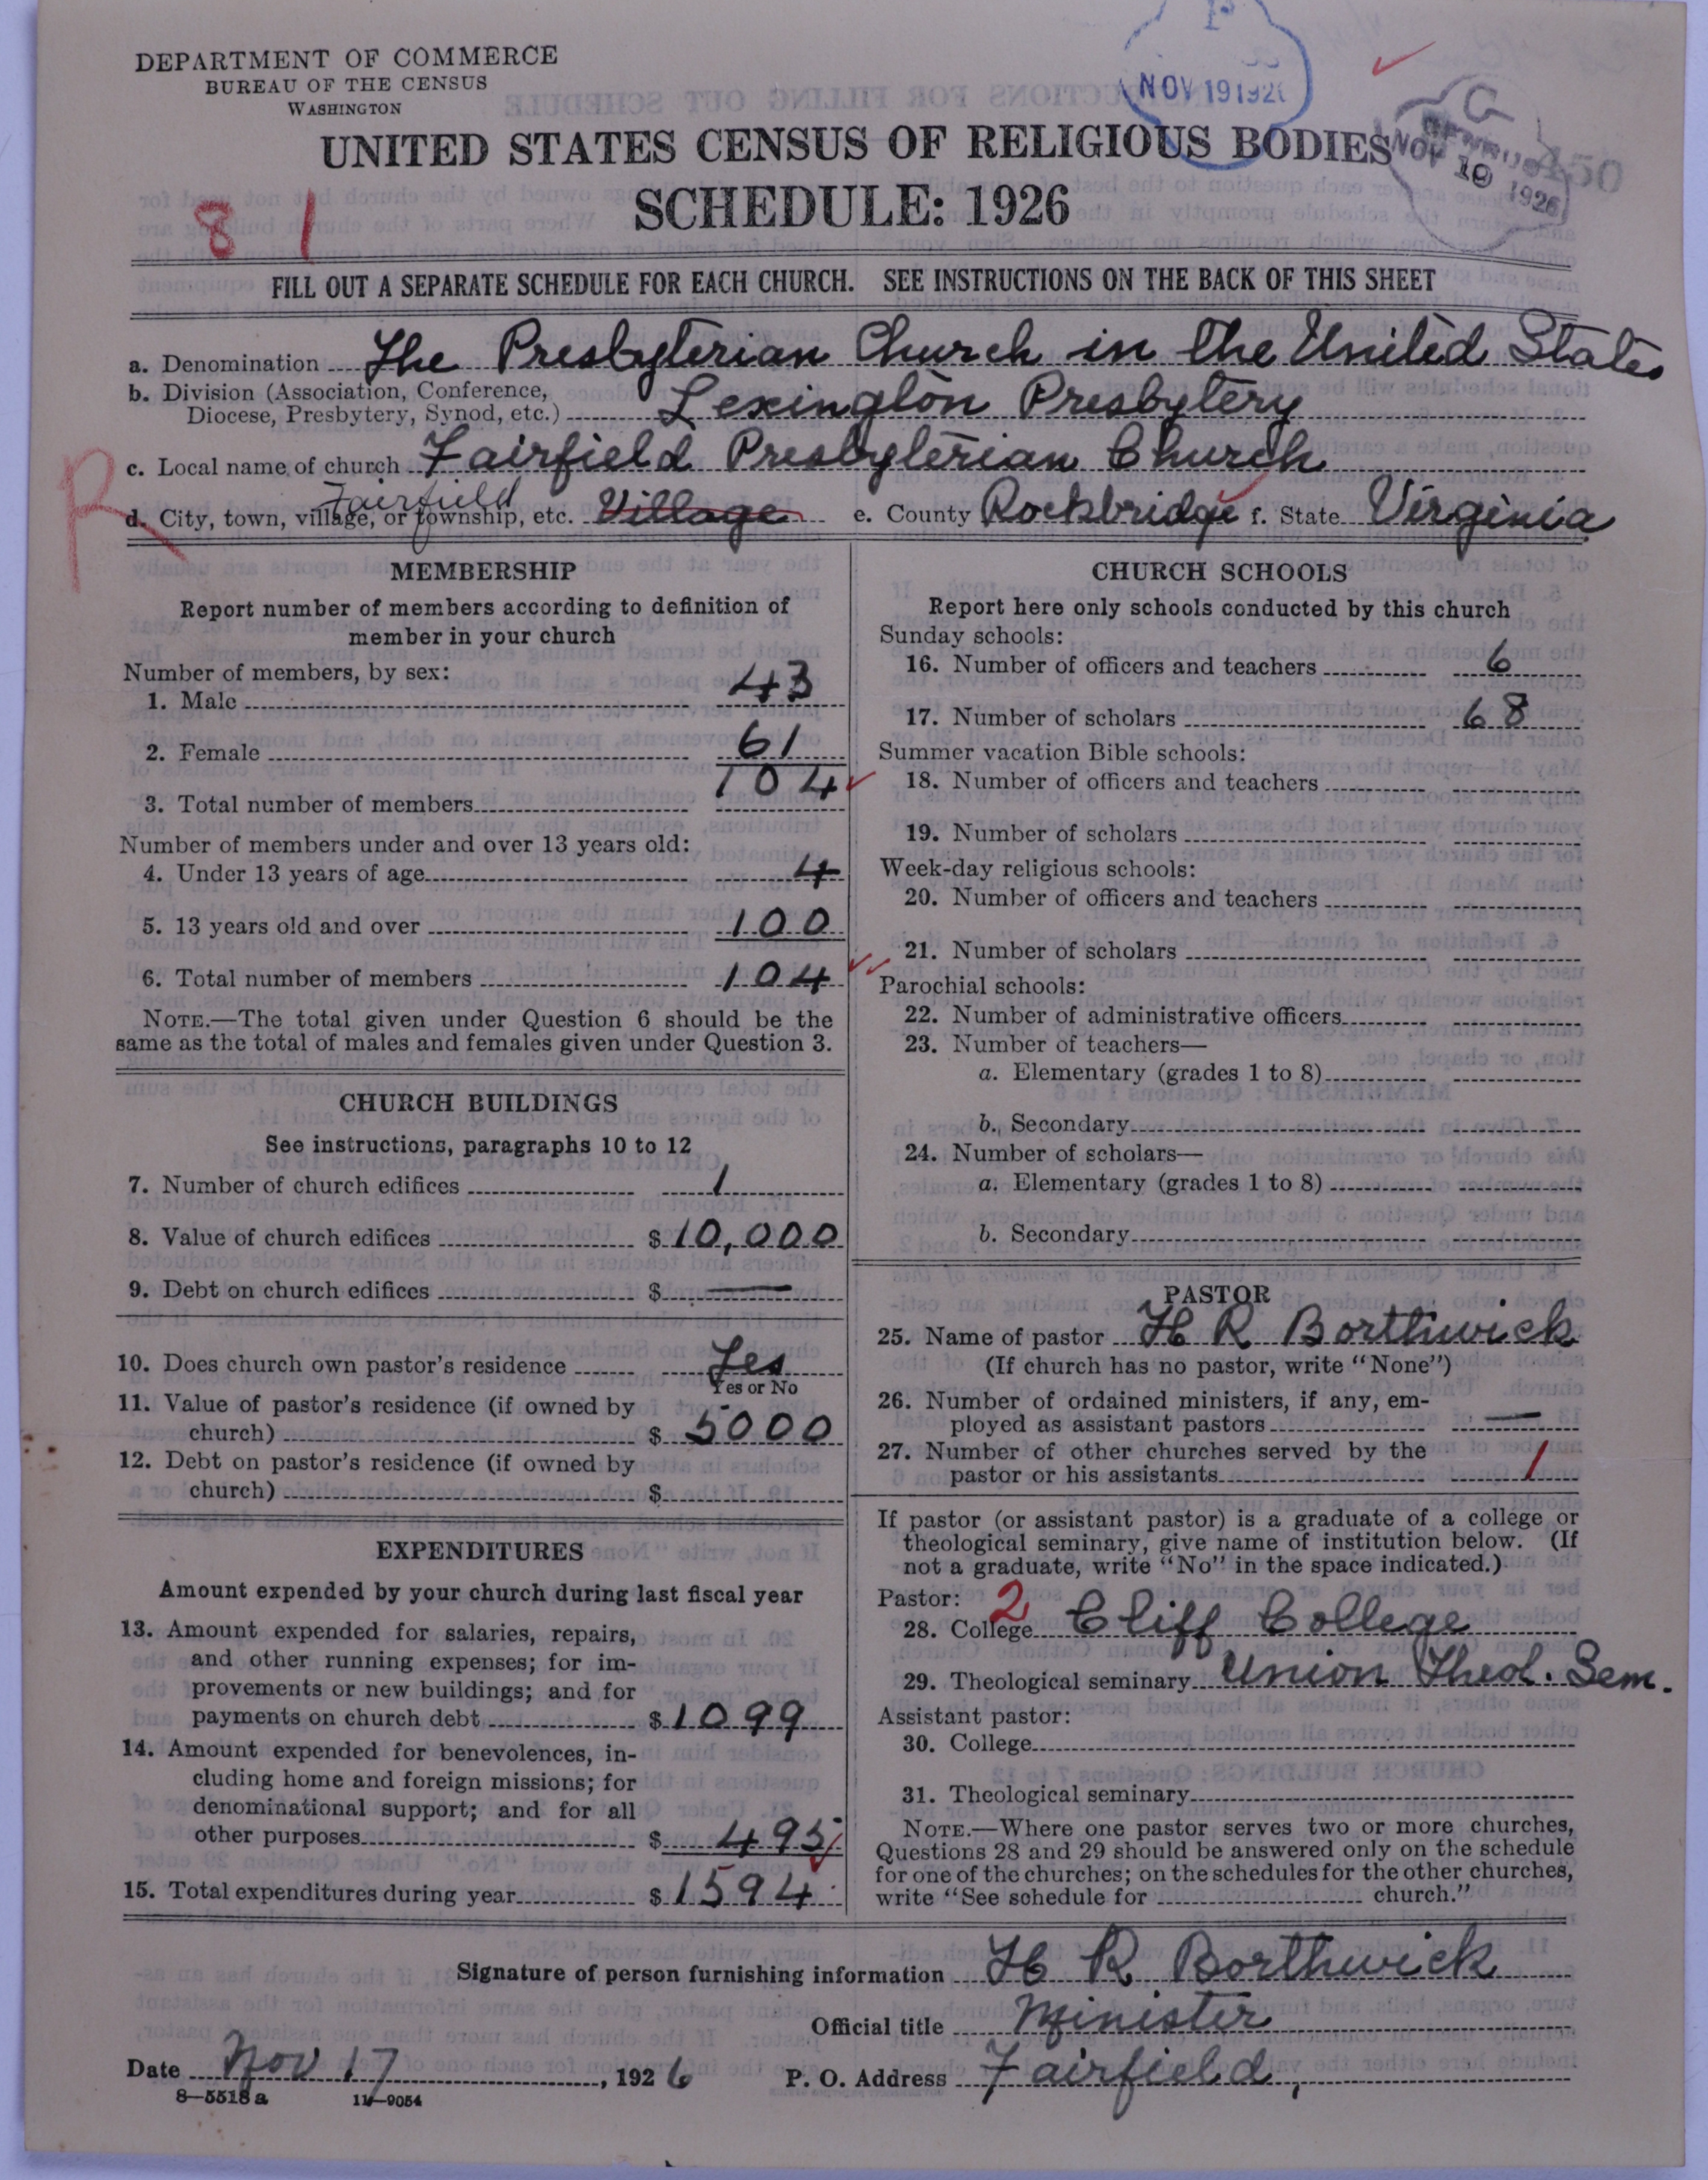 DEPARTMENT OF COMMERCE
BUREAU OF THE CENSUS
WASHINGTON
NOV 19 192
NOV 19 1926
450
UNITED STATES CENSUS OF RELIGIOUS BODIES
SCHEDULE: 1926
8 1
FILL OUT A SEPARATE SCHEDULE FOR EACH CHURCH. SEE INSTRUCTIONS ON THE BACK OF THIS SHEET
a. Denomination The Presbyterian Church in the United States
b. Division (Association, Conference,
Diocese, Presbytery, Synod, etc.) Lexington Presbytery
c. Local name of church Fairfield Presbyterian Church
R
Fairfield
d. City, town, village, or township, etc. Village e. County Rockbridge f. State Virginia
MEMBERSHIP
Report number of members according to definition of
member in your church
Number of members, by sex:
1. Male 43
2. Female 61
3. Total number of members 104
Number of members under and over 13 years old:
4. Under 13 years of age 4
5. 13 years old and over 100
6. Total number of members 104
NOTE.—The total given under Question 6 should be the
same as the total of males and females given under Question 3.
CHURCH BUILDINGS
See instructions, paragraphs 10 to 12
7. Number of church edifices 1
8. Value of church edifices $10,000
9. Debt on church edifices $ —
10. Does church own pastor's residence Yes
Yes or No
11. Value of pastor's residence (if owned by
church) $ 5000
12. Debt on pastor's residence (if owned by
church) $
EXPENDITURES
Amount expended by your church during last fiscal year
13. Amount expended for salaries, repairs,
and other running expenses; for im-
provements or new buildings; and for
payments on church debt $1099
14. Amount expended for benevolences, in-
cluding home and foreign missions; for
denominational support; and for all
other purposes $ 495
15. Total expenditures during year $1594
CHURCH SCHOOLS
Report here only schools conducted by this church
Sunday schools:
16. Number of officers and teachers 6
17. Number of scholars 68
Summer vacation Bible schools:
18. Number of officers and teachers
19. Number of scholars
Week-day religious schools:
20. Number of officers and teachers
21. Number of scholars
Parochial schools:
22. Number of administrative officers
23. Number of teachers—
a. Elementary (grades 1 to 8)
b. Secondary
24. Number of scholars—
a. Elementary (grades 1 to 8)
b. Secondary
PASTOR
25. Name of pastor H R Borthwick
(If church has no pastor, write "None")
26. Number of ordained ministers, if any, em-
ployed as assistant pastors —
27. Number of other churches served by the
pastor or his assistants 1
If pastor (or assistant pastor) is a graduate of a college or
theological seminary, give name of institution below. (If
not a graduate, write "No" in the space indicated.)
Pastor: 2
28. College Cliff College
29. Theological seminary Union Theol. Sem.
Assistant pastor:
30. College
31. Theological seminary
NOTE.—Where one pastor serves two or more churches,
Questions 28 and 29 should be answered only on the schedule
for one of the churches; on the schedules for the other churches,
write "See schedule for church."
Signature of person furnishing information H R Borthwick
Official title Minister
Date Nov 17, 1926 P. O. Address Fairfield,
8—5518 a 11—9054